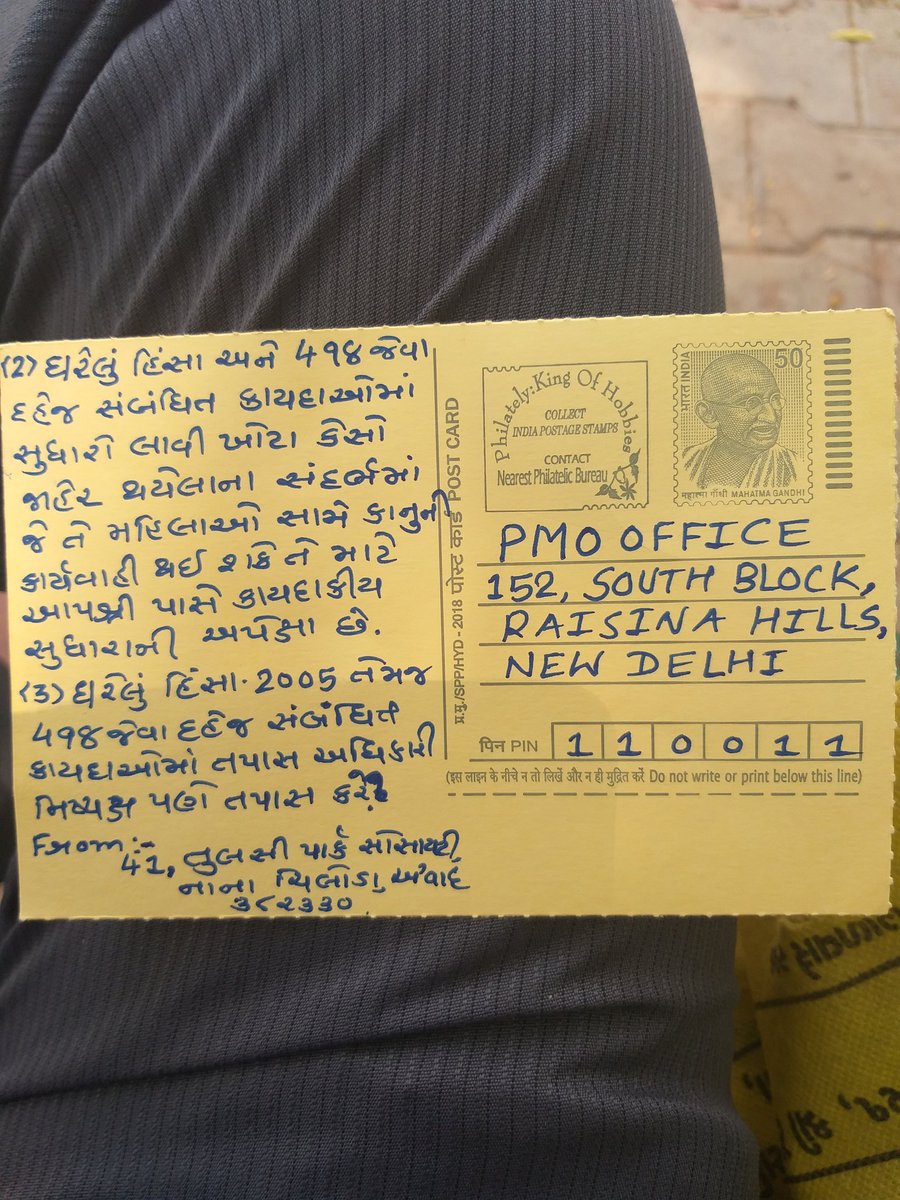 (2) ઘરેલું હિંસા અને 498 જેવા
દહેજ સંબંધિત કાયદાઓમાં
સુધારો લાવી ખોટા કેસો
જાહેર થયેલાના સંદર્ભમાં
જે તે મહિલાઓ સામે કાનુની
કાર્યવાહી થઈ શકે તે માટે
આપશ્રી પાસે કાયદાકીય
સુધારાની અપેક્ષા છે.
(3) ઘરેલું હિંસા. 2005 તેમજ
498 જેવા દહેજ સંબંધિત
કાયદાઓમાં તપાસ અધિકારી
નિષ્પક્ષ પણે તપાસ કરે?
From:-
41, તુલસી પાર્ક સોસાયટી
નાના ચિલોડા, અ'વાદ
૩૮૨૩૩૦.
प्र.मु./SPP/HYD - 2018 पोस्ट कार्ड POST CARD
Philately: King Of Hobbies
COLLECT
INDIA POSTAGE STAMPS
CONTACT
Nearest Philatelic Bureau
भारत INDIA
50
महात्मा गाँधी MAHATMA GANDHI
PMO OFFICE
152, SOUTH BLOCK,
RAISINA HILLS,
NEW DELHI
पिन PIN 1 1 0 0 1 1
(इस लाइन के नीचे न तो लिखें और न ही मुद्रित करें Do not write or print below this line)